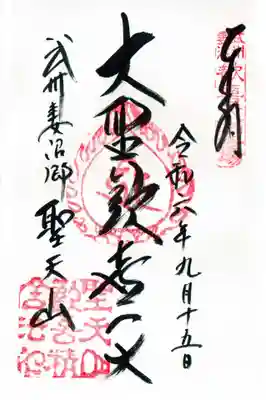 奉拝
令和元年九月十五日
大聖歓喜天
武州妻沼郷 聖天山
聖天山